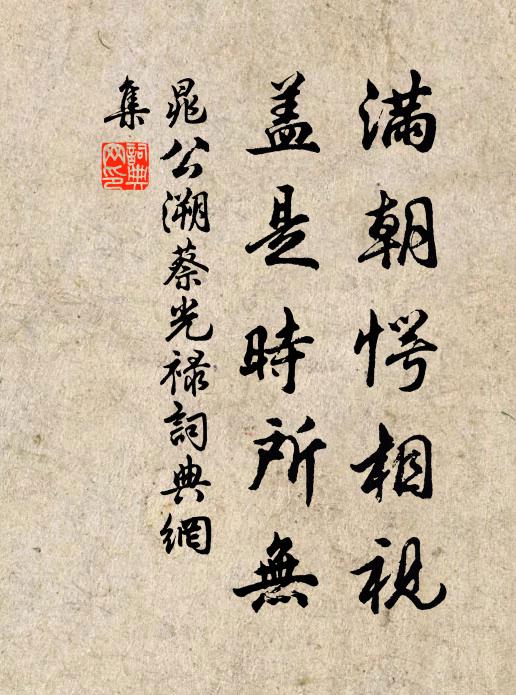 滿朝愕相視
盖是時所無
晁公溯蔡光祿詞典網
集
詞典網印